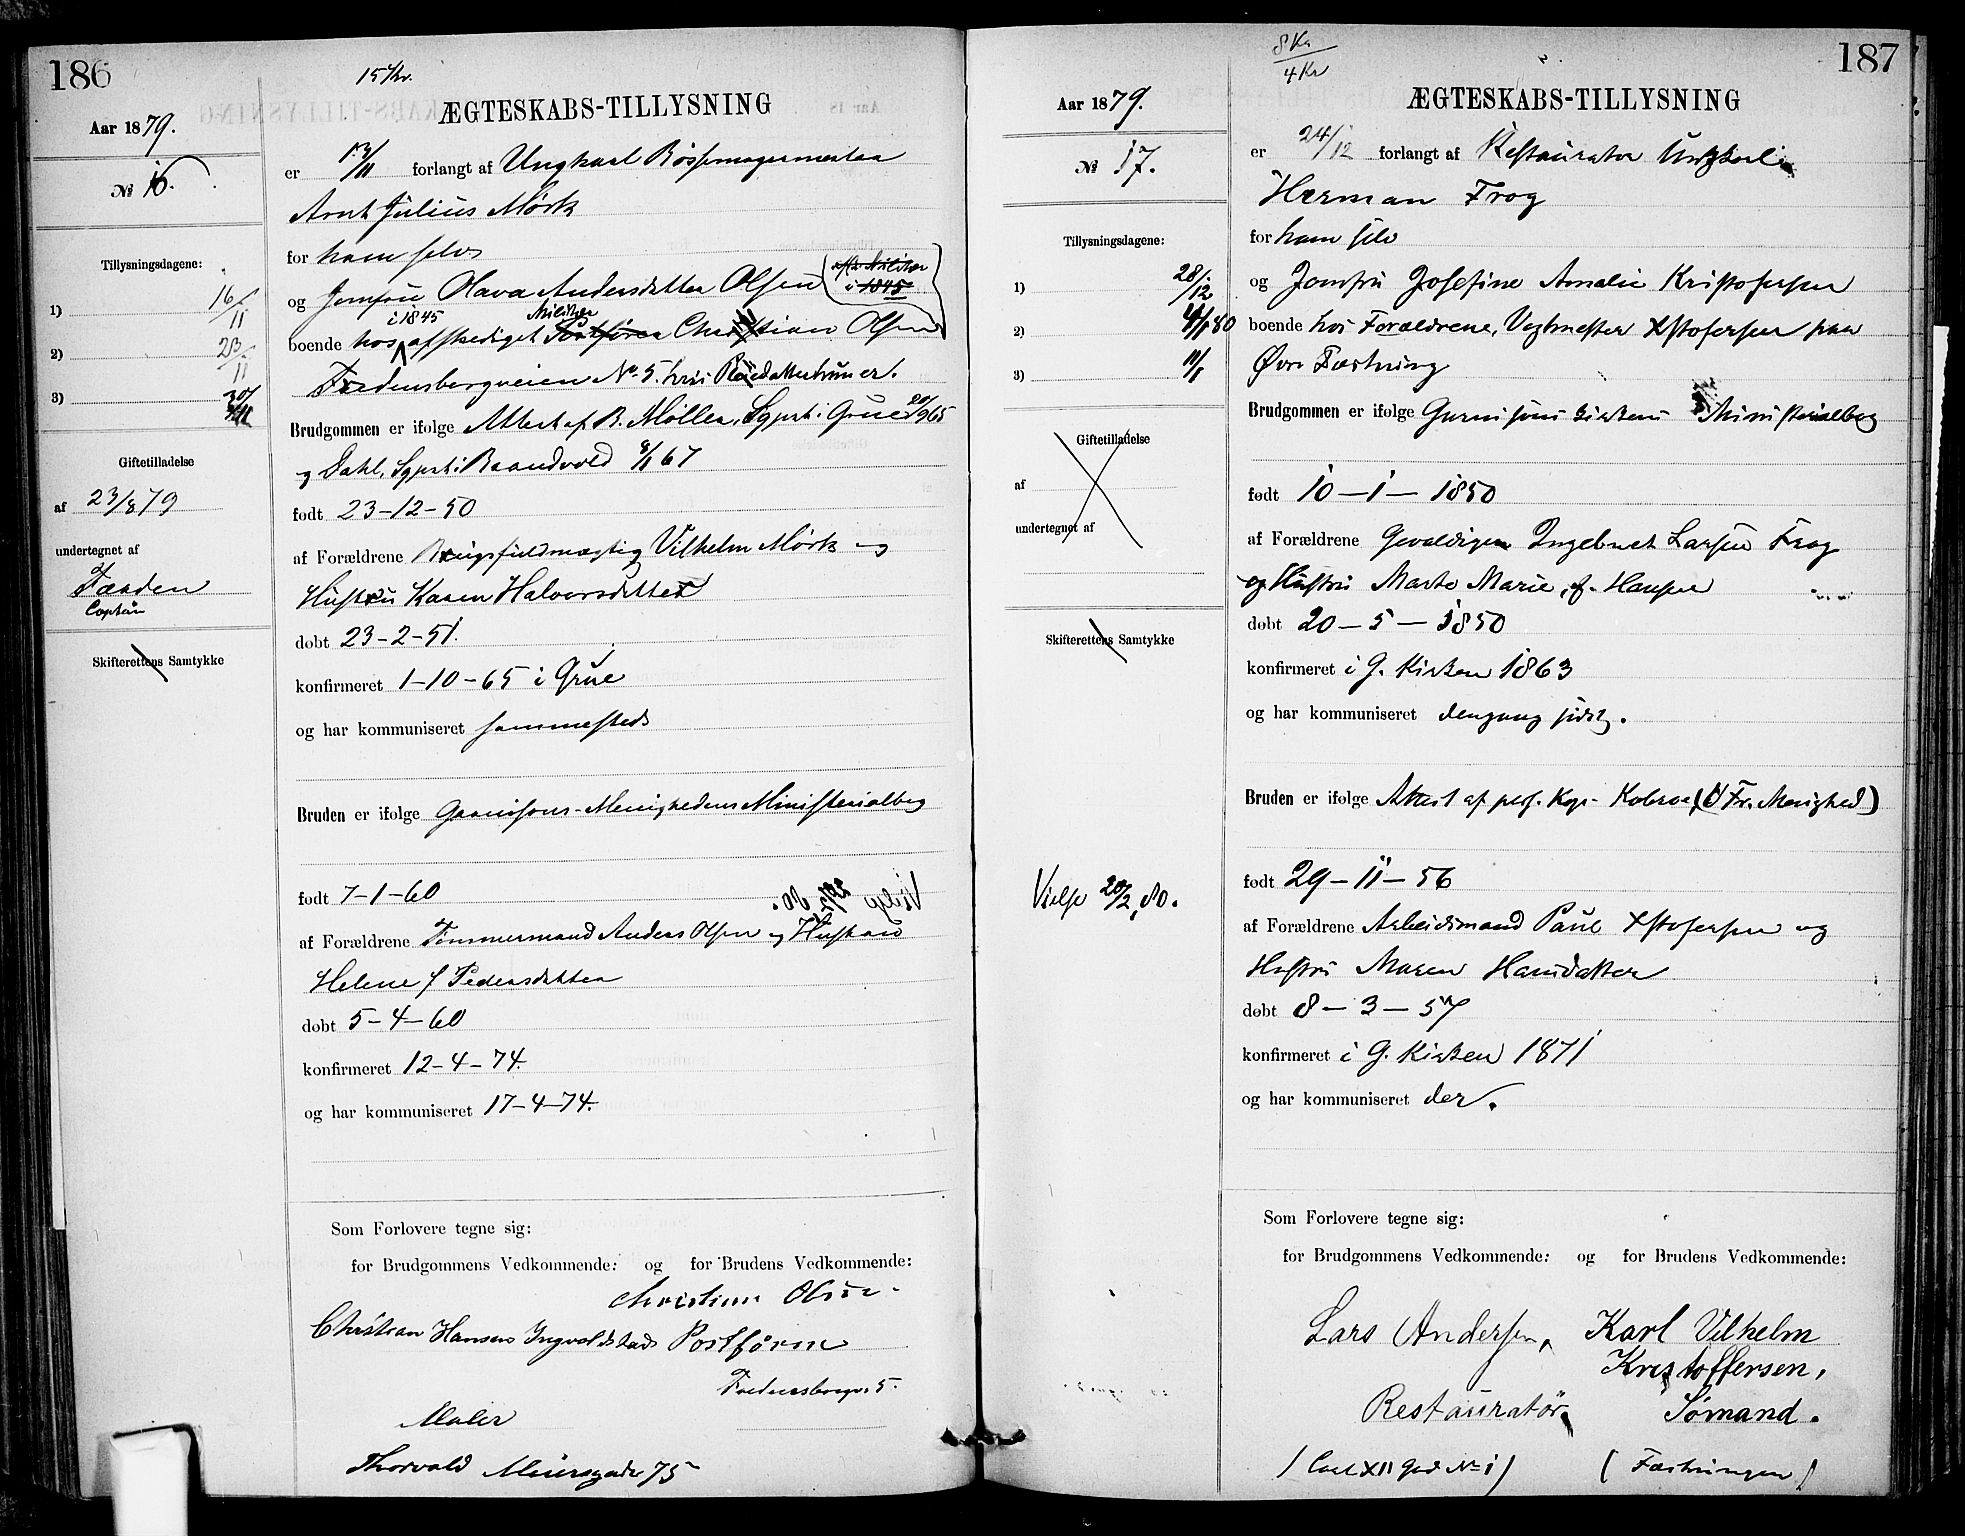 186
15 Kr.
Aar 1879.
№ 16.
Tillysningsdagene:
1) 16/11
2) 23/11
3) 30/11
Giftetilladelse
af 23/8 79
undertegnet af
Færden
Captain
Skifterettens Samtykke
ÆGTESKABS-TILLYSNING
er 13/11 forlangt af Ungkarl Bøssemagermester
Arnt Julius Mørk
for ham selv
og Jomfru Olava Andersdatter Olsen
i 1845 Militær
boende hos afskediget Postfører Christian Olsen
Fredensbergveien No. 5. hvis er.
Brudgommen er ifølge Attest af B. Møller, Sgpr. i Grue 20/9 65
og Dahl, Sgpr. i Brandvold 8/1 67
født 23-12-50
af Forældrene Vilhelm Mørk og
Hustru Karen Halvorsdatter
døbt 23-2-51.
konfirmeret 1-10-65 i Grue
og har kommuniseret sammesteds
Bruden er ifølge Garnisons-Menighedens Ministerialbog
født 7-1-60
af Forældrene Tømmermand Anders Olsen og Hustru
Helene f Pedersdatter
døbt 5-4-60
konfirmeret 12-4-74.
og har kommuniseret 17-4-74.
Som Forlovere tegne sig:
for Brudgommens Vedkommende: og for Brudens Vedkommende:
Christian Olsen
Christian Hansen Ingvoldstad Postfører
Fredensborgv. 5.
Maler
Thorvald Meiersgade 75
187
8 Kr
4 Kr
Aar 1879.
№ 17.
Tillysningsdagene:
1) 28/12
2) 4/1 80
3) 11/1
Giftetilladelse
af
undertegnet af
Skifterettens Samtykke
Vielse 20/2, 80.
ÆGTESKABS-TILLYSNING
er 24/12 forlangt af Restauratør Ungkarl
Herman Frog
for ham selv
og Jomfru Josefine Amalie Kristofersen
boende hos Forældrene, Vagtmester Xstofersen paa
Øvre Fæstning
Brudgommen er ifølge Garnisons kirkens Ministerialbog
født 10-1-1850
af Forældrene Gevaldiger Ingebret Larsen Frog
og Hustru Marte Marie, f. Hansen
døbt 20-5-1850
konfirmeret i G. Kirken 1863
og har kommuniseret dengang sidst.
Bruden er ifølge Attest af pers. Kap. Kobroe, (V Fr. Menighed)
født 29-11-56
af Forældrene Arbeidsmand Paul Xstofersen og
Hustru Maren Hansdatter
døbt 8-3-57
konfirmeret i G. Kirken 1871
og har kommuniseret der.
Som Forlovere tegne sig:
for Brudgommens Vedkommende: og for Brudens Vedkommende:
Lars Andersen, Karl Vilhelm
Kristoffersen,
Restauratør, Sømand.
(Carl XII Gad No 1) (Fæstningen)